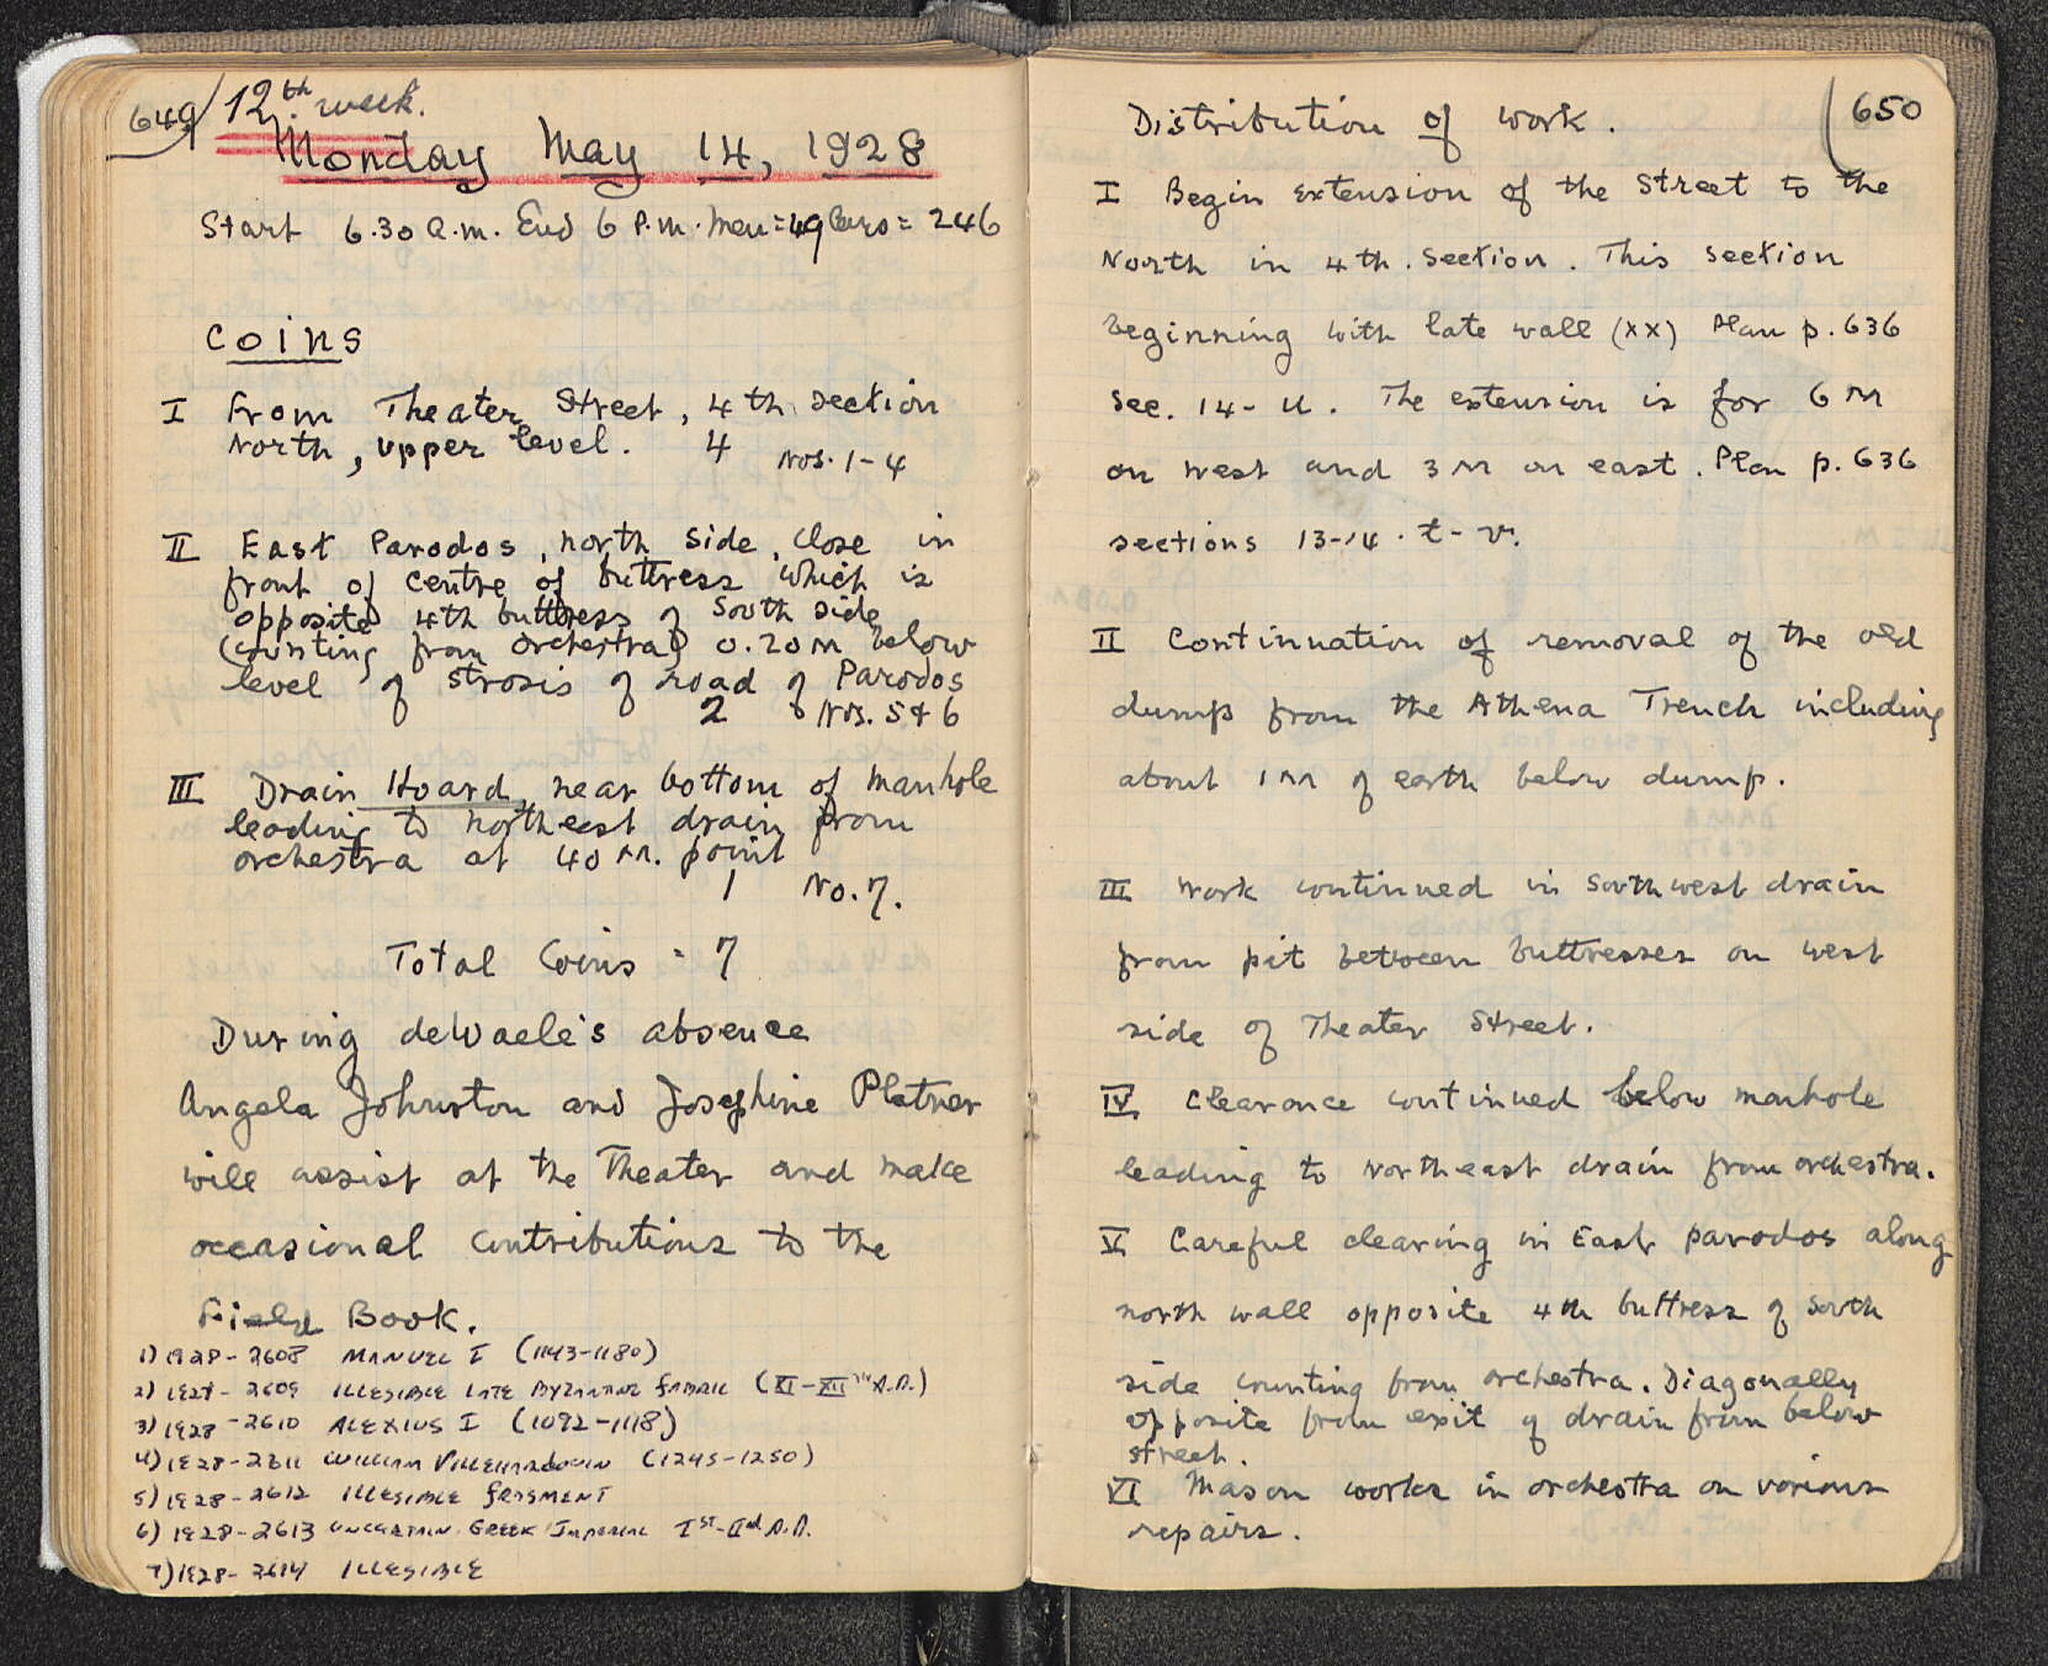 649
12th. week.
Monday May 14, 1928
Start 6.30 a.m. End 6 P.m. Men = 49 Cars = 246
Coins
I From Theater Street, 4th section
North, upper level. 4 Nos. 1-4
II East Parodos, north side, close in
front of centre of buttress which is
opposite 4th buttress of South side
(counting from orchestra) 0.20 m below
level of strosis of road of Parodos
2 Nos. 5 & 6
III Drain Hoard, near bottom of manhole
leading to northeast drain from
orchestra at 40 m. point
1 No. 7.
Total Coins = 7
During deWaele's absence
Angela Johnston and Josephine Platner
will assist at the Theater and make
occasional contributions to the
Field Book.
1) 1928-2608 MANUEL I (1143-1180)
2) 1928-2609 ILLEGIBLE LATE BYZANTINE FABRIC (XI-XIIth A.D.)
3) 1928-2610 ALEXIUS I (1092-1118)
4) 1928-2611 WILLIAM VILLEHARDOUIN (1245-1250)
5) 1928-2612 ILLEGIBLE FRAGMENT
6) 1928-2613 UNCERTAIN GREEK IMPERIAL Ist-IInd A.D.
7) 1928-2614 ILLEGIBLE
650
Distribution of work.
I Begin extension of the Street to the
North in 4th. section. This section
beginning with late wall (xx) Plan p. 636
Sec. 14-u. The extension is for 6 m
on west and 3 m on east. Plan p. 636
sections 13-14. t-v.
II Continuation of removal of the old
dump from the Athena Trench including
about 1 m of earth below dump.
III Work continued in Southwest drain
from pit between buttresses on west
side of Theater Street.
IV Clearance continued below manhole
leading to Northeast drain from orchestra.
V Careful clearing in East parodos along
north wall opposite 4th buttress of South
side counting from orchestra. Diagonally
opposite from exit of drain from below
street.
VI Mason works in orchestra on various
repairs.